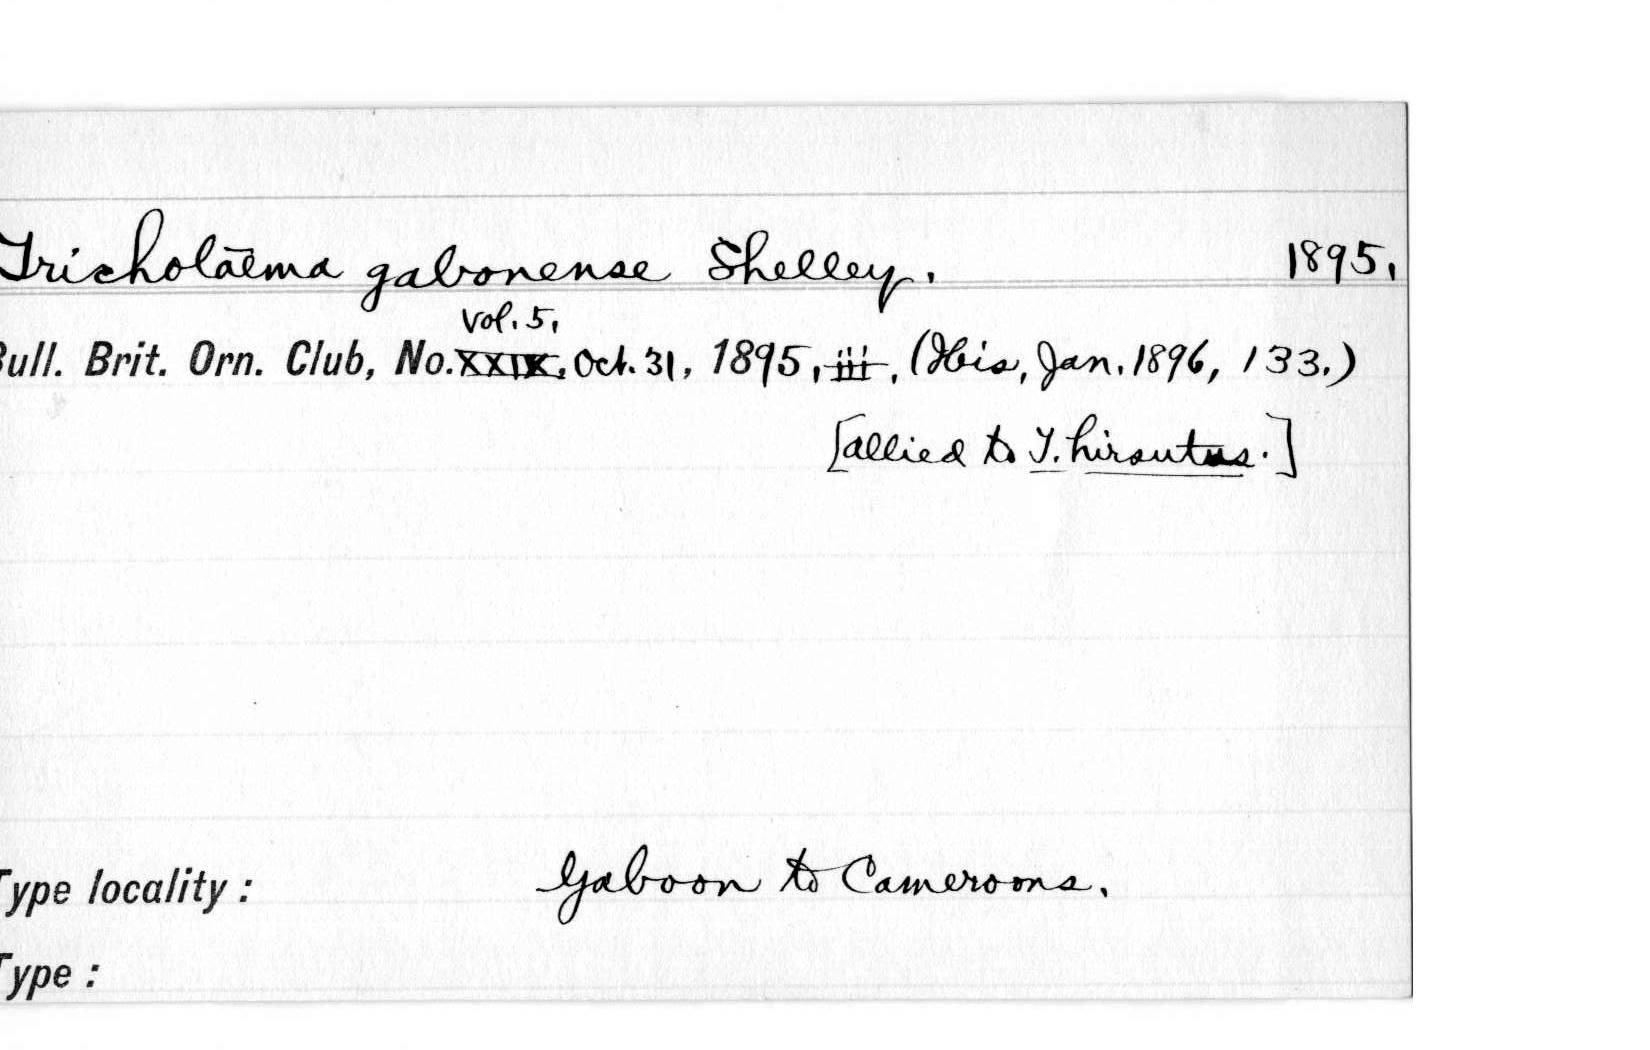 Tricholāema gabonense Shelley. 1895.
vol. 5.
Bull. Brit. Orn. Club, No. XXIX. Oct. 31, 1895, iii, (Ibis, Jan. 1896, 133.)
[allied to T. hirsutus.]
Type locality: Gaboon to Cameroons.
Type: